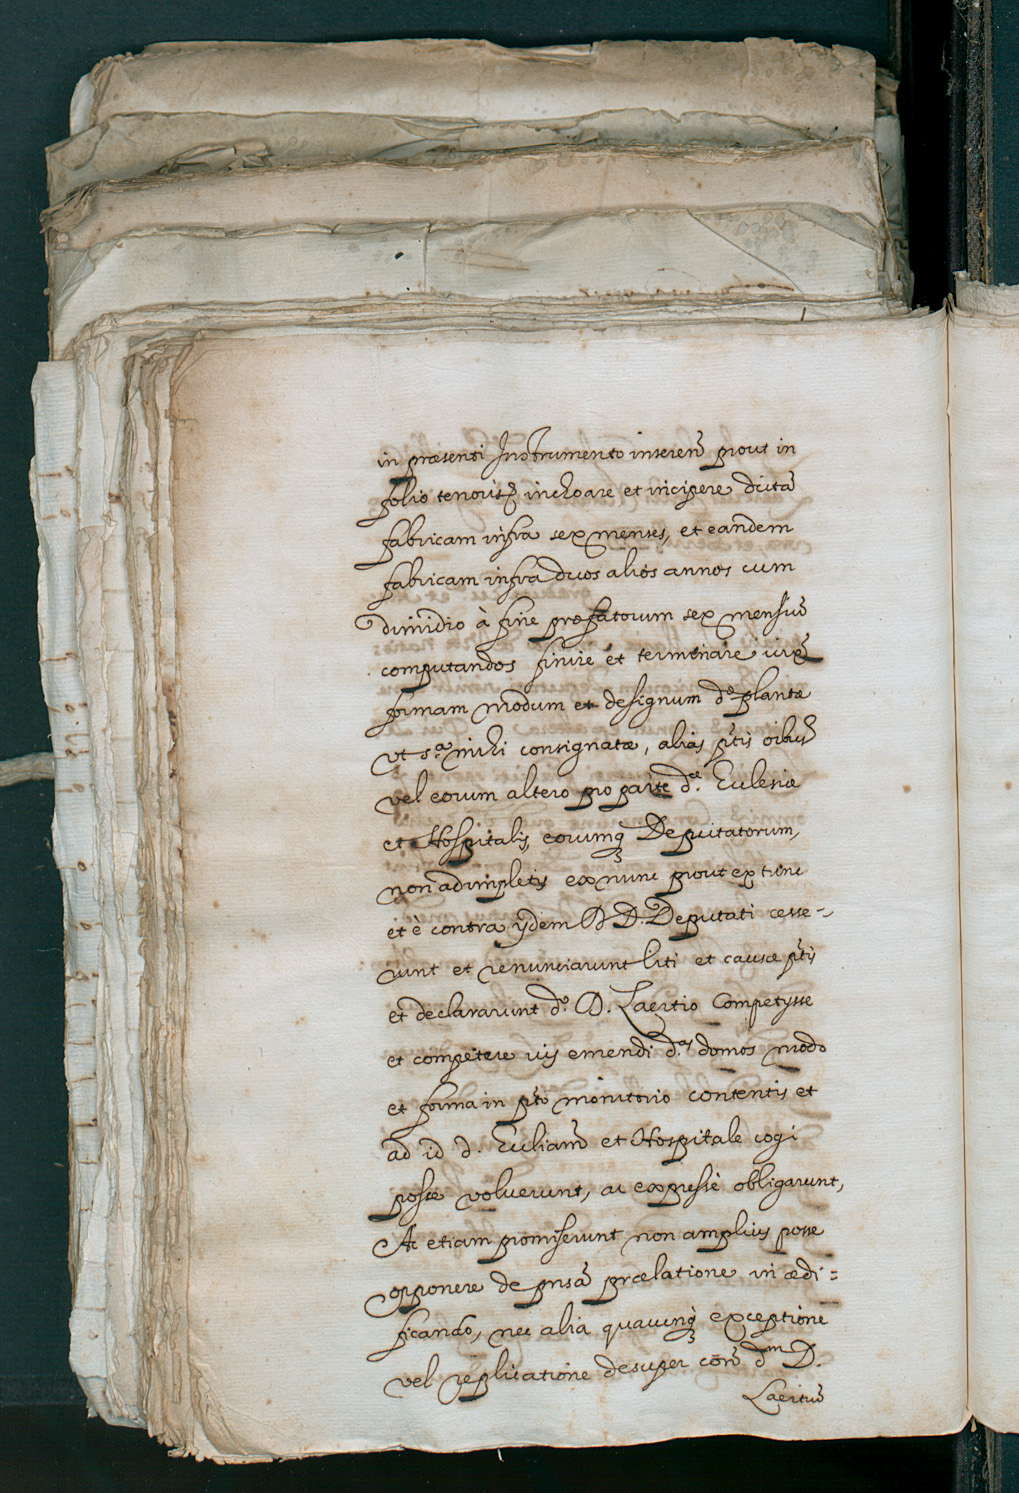 in præsenti Instrumento inseren̄ prout in
folio tenoris inchoare et incipere dictā
fabricam infra sex menses, et eandem
fabricam infra duos alios annos cum
dimidio à fine præfatorum sex mensiū
computandos finire et terminare iuxᵃ
formam modum et designum dᵉ plantæ
vt sᵃ mihi consignatæ, alias pᵗis oibus
vel eorum altero pro parte dᵉ Ecclesiæ
et Hospitalis, eorumq̨ Deputatorum,
non adimpletis ex nunc prout ex tunc
et è contra ijdem D D. Deputati cesse-
runt et renunciarunt liti et causæ pᵗis
et declararunt dᵒ. D. Laertio Competijsse
et competere ius emendi dᵃˢ domos modo
et forma in pᵗo monitorio contentis et
ad id d. Eccliam̄ et Hospitale cogi
posse voluerunt, ac expressè obligarunt,
Ac etiam promiserunt non amplius posse
opponere de pnsā prælatione in ædi=
ficando, nec alia quacunq̨ exceptione
vel replicatione desuper con̄ dᵐ D.
Laertiū